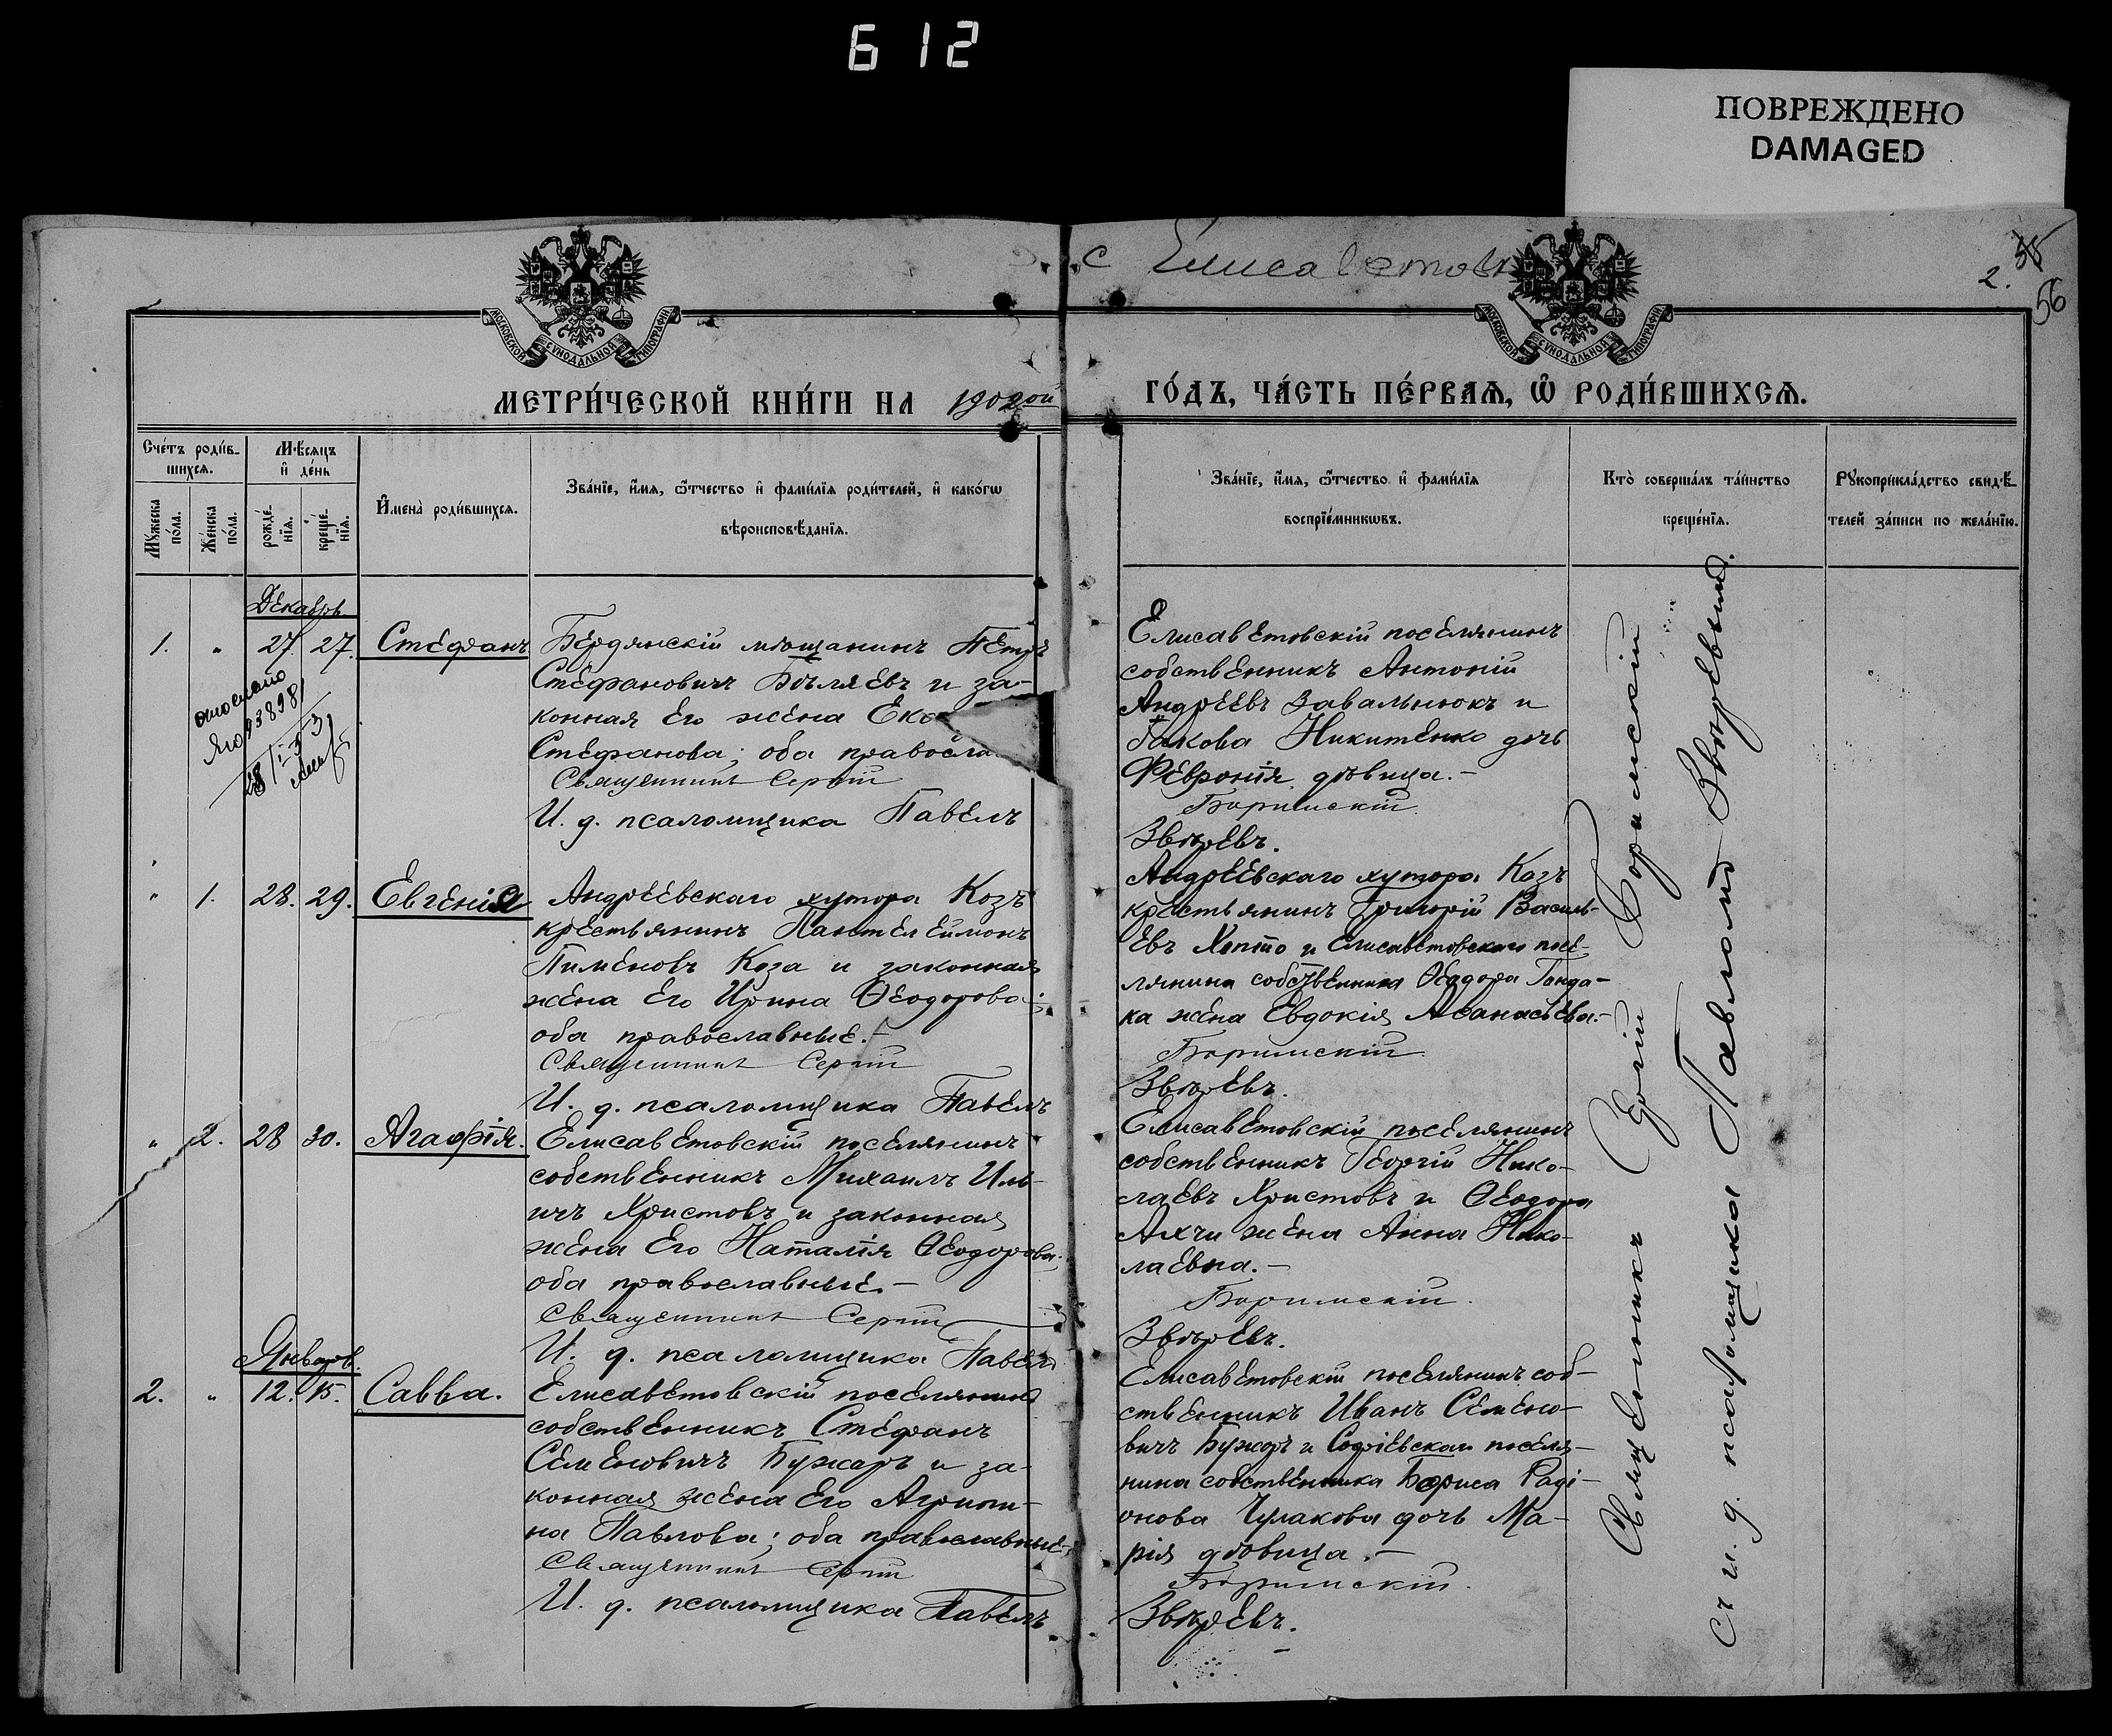 612
ПОВРЕЖДЕНО
DAMAGED
с Елисаветов
2.
56
МОСКОВСКОЙ СѴНОДАЛЬНОЙ ТИПОГРАФІИ
МОСКОВСКОЙ СѴНОДАЛЬНОЙ ТИПОГРАФІИ
МЕТРИ́ЧЕСКОЙ КНИ́ГИ НА 1902ой
ГО́ДЪ, ЧА́СТЬ ПЕ́РВАѦ, Ѽ РОДИ́ВШИХСѦ.
Сче́тъ роди́в-
шихсѧ.
Мꙋ́жеска по́ла.
Же́нска по́ла.
Мѣ́сяцъ
и҆ де́нь
рожде́-
нїѧ.
креще́-
нїѧ.
И҆мена̀ роди́вшихсѧ.
Зва́нїе, и҆́мѧ, ѻ҆́тчество и҆ фами́лїѧ роди́телей, и҆ како́гѡ
вѣроисповѣ́данїѧ.
Зва́нїе, и҆́мѧ, ѻ҆́тчество и҆ фами́лїѧ
воспрїе́мникѡвъ.
Кто̀ соверша́лъ та́инство
креще́нїѧ.
Рꙋкоприкла́дство свидѣ́-
телей за́писи по жела́нїю.
Декабрь
1. " 27. 27. Стефанъ
Бердянскій мѣщанинъ Петръ
Стефановичъ Бѣляевъ и за-
конная его жена Ек
Стефанова; оба правосла
Священникъ Сергій
И. д. псаломщика Павелъ
Елисаветовскій поселянинъ
собственникъ Антоній
Андреевъ Завальнюкъ и
Іакова Никитенко дочь
Февронія дѣвица.-
Боримскій
Звѣревъ.
" 1. 28. 29. Евгенія
Андреевскаго хутора Козъ
крестьянинъ Пантелеимонъ
Пименовъ Коза и законная
жена его Ирина Ѳеодорова;
оба православные.-
Священникъ Сергій
И. д. псаломщика Павелъ
Андреевскаго хутора Козъ
крестьянинъ Григорій Василь-
евъ и Елисаветовскаго посе-
лянина собственника Ѳеодора Ганда-
ка жена Евдокія Аѳанасьева.-
Боримскій
Звѣревъ.
" 2. 28 30. Агафія.
Елисаветовскій поселянинъ
собственникъ Михаилъ Иль-
ичъ Христовъ и законная
жена его Наталія Ѳеодорова
оба православные.-
Священникъ Сергій
И. д. псаломщика Павелъ
Елисаветовскій поселянинъ
собственникъ Георгій Нико-
лаевъ Христовъ и Ѳеодора
Ахчи жена Анна Нико-
лаевна.-
Боримскій.
Звѣревъ.
Январь.
2. " 12. 15. Савва.
Елисаветовскій поселянинъ
собственникъ Стефанъ
Семеновичъ Бужаръ и за-
конная жена его Агрипи-
на Павлова; оба православные
Священникъ Сергій
И. д. псаломщика Павелъ
Елисаветовскій поселянинъ соб-
ственникъ Иванъ Семено-
вичъ Бужаръ и Софіевскаго поселя-
нина собственника Бориса Раді-
онова Чулакова дочь Ма-
рія дѣвица.-
Боримскій.
Звѣревъ.
Священникъ Сергій Боримскій
съ и. д. псаломщика Павломъ Звѣревымъ.